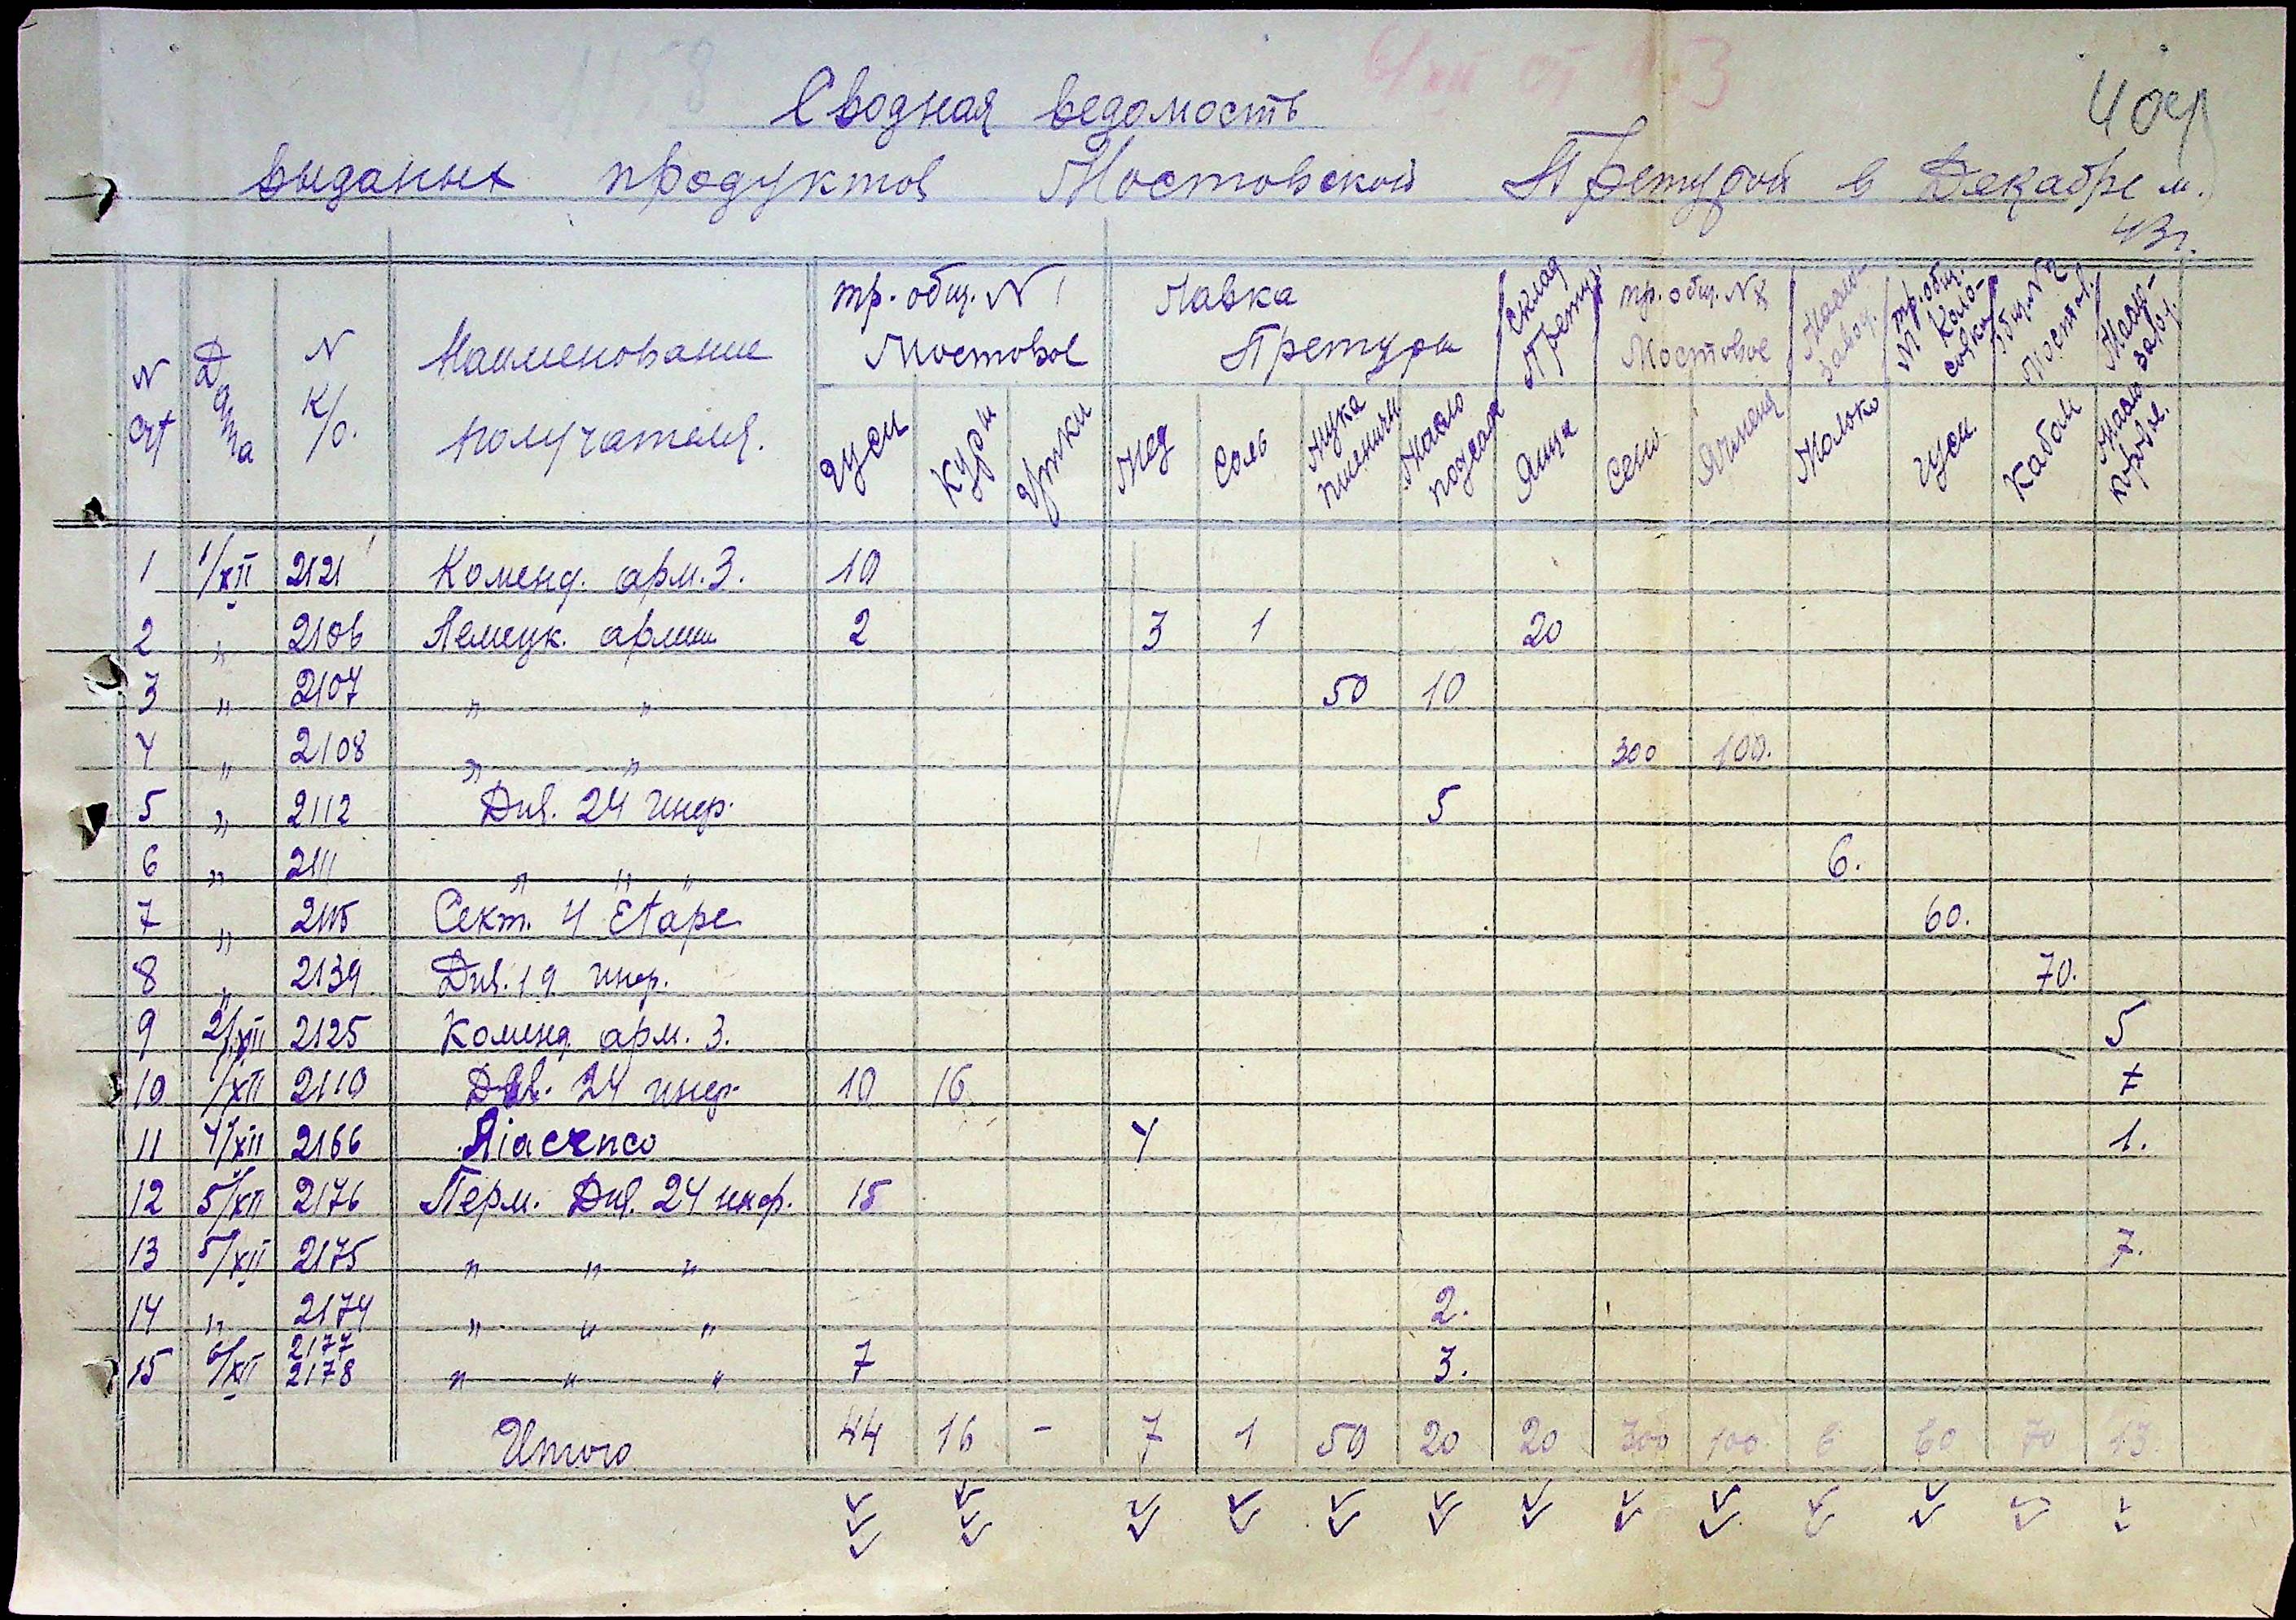 Сводная ведомость
выданых продуктов Мостовской Претурой в Декабре м.
43 г.
N сч Дата N К/о. Наименование получателя. тр. общ. N 1 Мостовое Лавка Претури Склад Претур. тр. общ. N Мостовое Масло-завод. тр. общ. Коло-совка Общ. N 2 Мостов. Масло-завод.
Гуси Кури Утки Мед Соль Мука пшеничн. Масло подсол Яйца Сено Ячменя Молоко Гуси. Кабан Масло коровье.
1 1/XII 2121 Коменд. арм. 3. 10
2 „ 2106 Немецк. армии 2 3 1 20
3 „ 2107 „ „ 50 10
4 „ 2108 „ „ 300 100.
5 „ 2112 Див. 24 инф. 5
6 „ 2111 „ „ „ 6.
7 „ 2115 Сект. 4 Etape 60.
8 „ 2139 Див. 19 инф. 70.
9 2/XII 2125 Коменд. арм. 3. 5
10 1/XII 2110 Див. 24 инф. 10 16 7
11 4/XII 2166 4 1.
12 5/XII 2176 Перм. Див. 24 инф. 15
13 5/XII 2175 „ „ „ 7.
14 „ 2174 „ „ „ 2.
15 6/XII 2177 2178 „ „ „ 7 3.
Итого 44 16 - 7 1 50 20 20 300 100. 6 60 70 13.